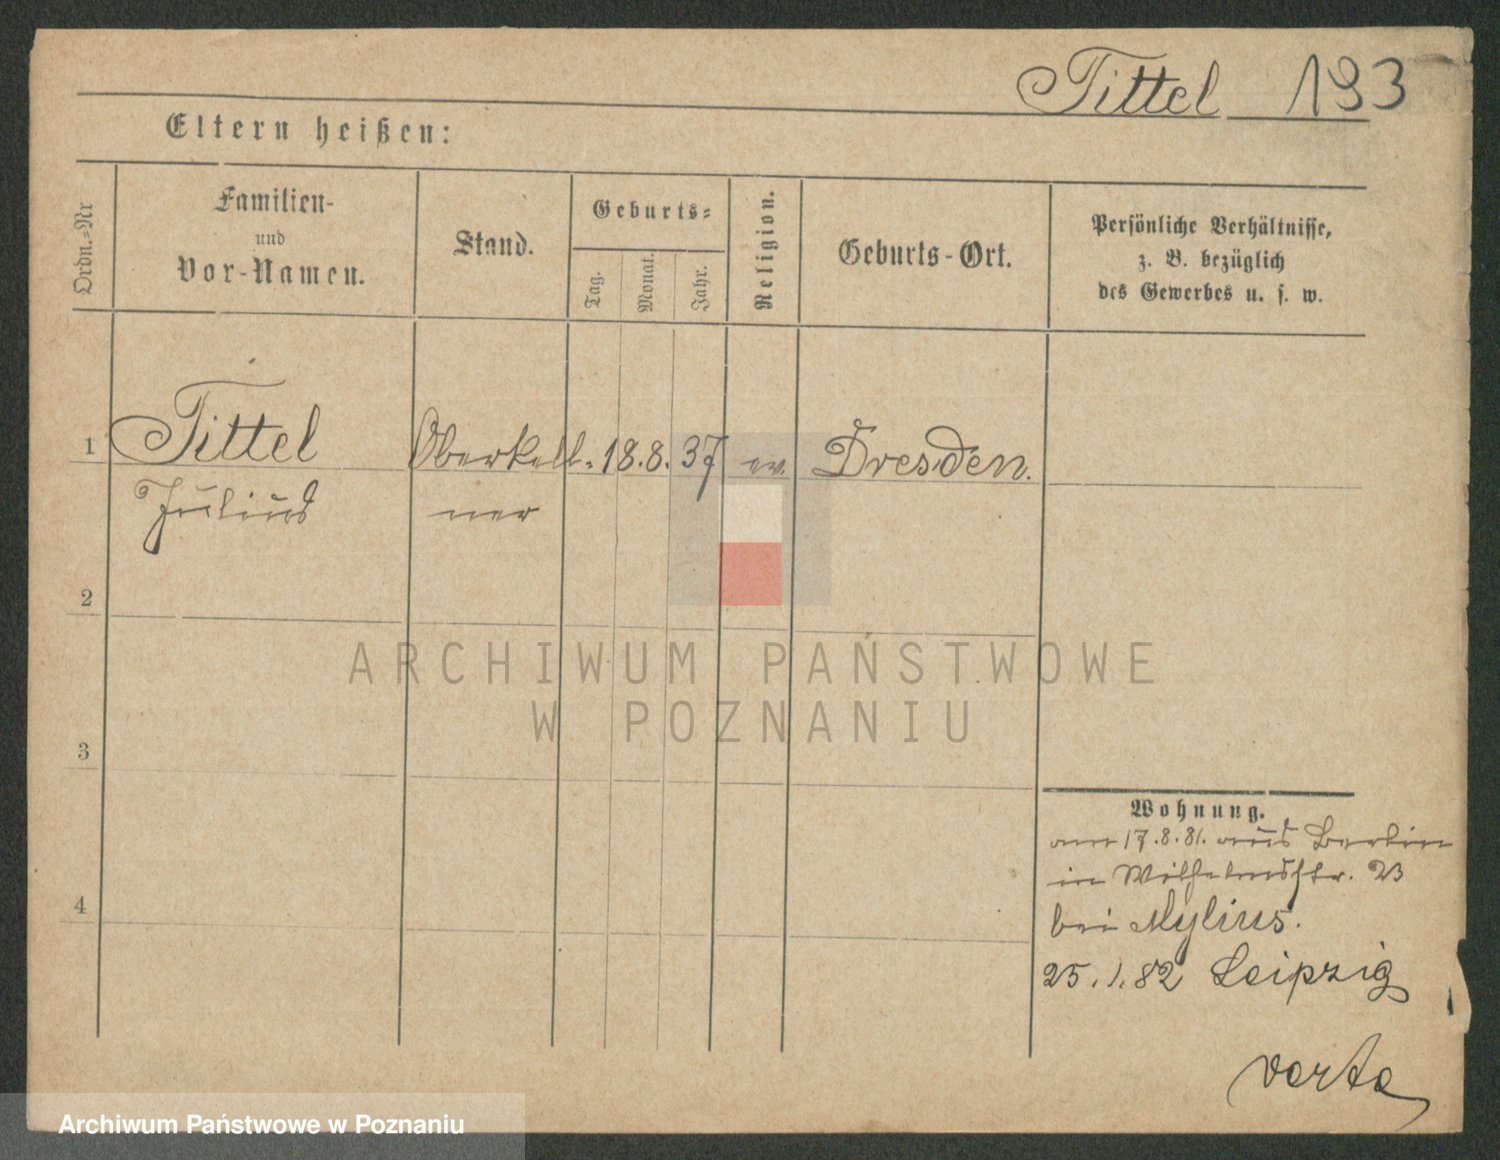 Tittel 193
Eltern heißen:
Ordn.=Nr
Familien-
und
Vor-Namen.
Stand.
Geburts=
Tag.
Monat.
Jahr.
Religion.
Geburts-Ort.
Persönliche Verhältnisse,
z. B. bezüglich
des Gewerbes u. s. w.
1 Tittel Oberkell- 18. 8. 37 ev. Dresden.
Julius ner
2
ARCHIWUM PAŃSTWOWE
W POZNANIU
3
Wohnung.
am 17. 8. 81. aus Berlin
in Wilhelmsstr. 23
4
bei Mylius.
25. 1. 82 Leipzig
verte
Archiwum Państwowe w Poznaniu